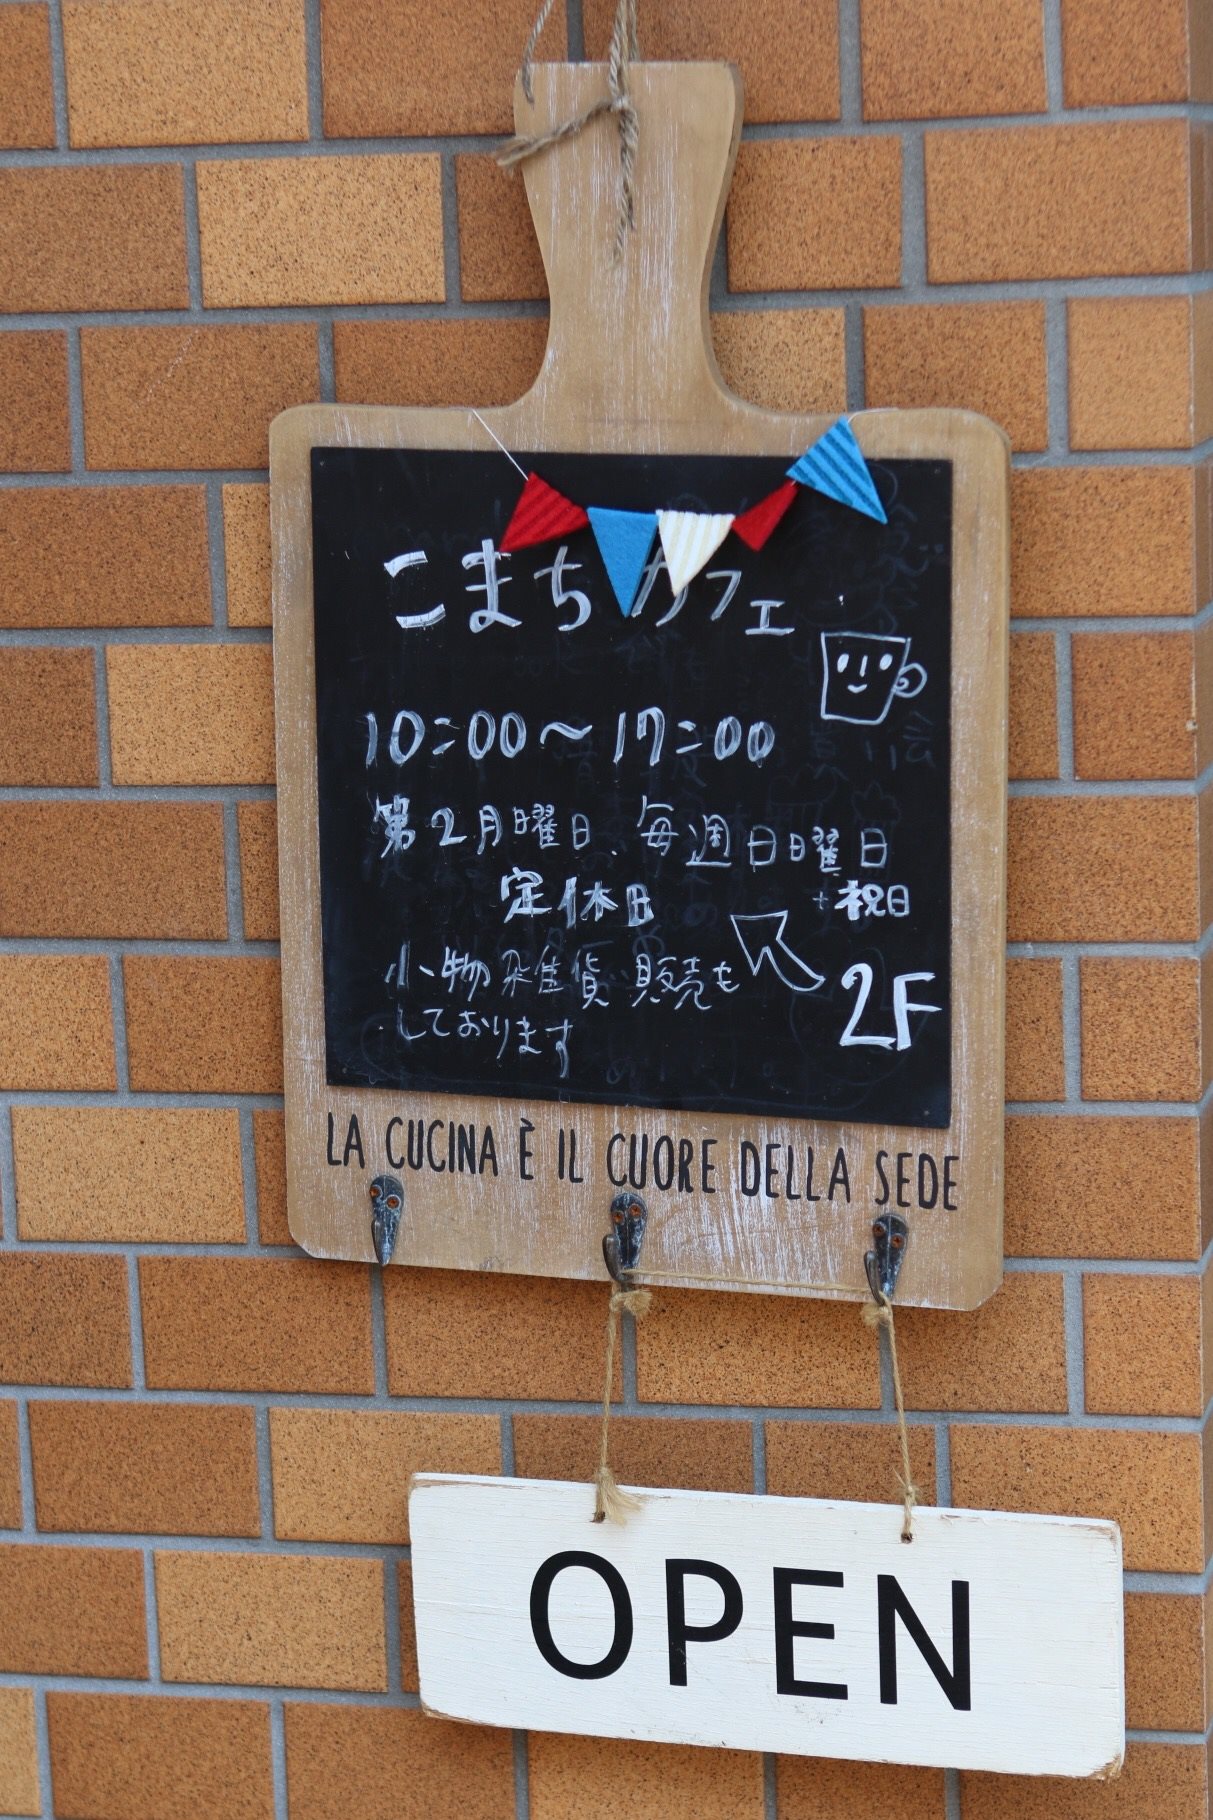 こまちカフェ
10:00〜17:00
第2月曜日、毎週日日曜日
定休日 +祝日
小物雑貨販売も
しております
2F
LA CUCINA È IL CUORE DELLA SEDE
OPEN